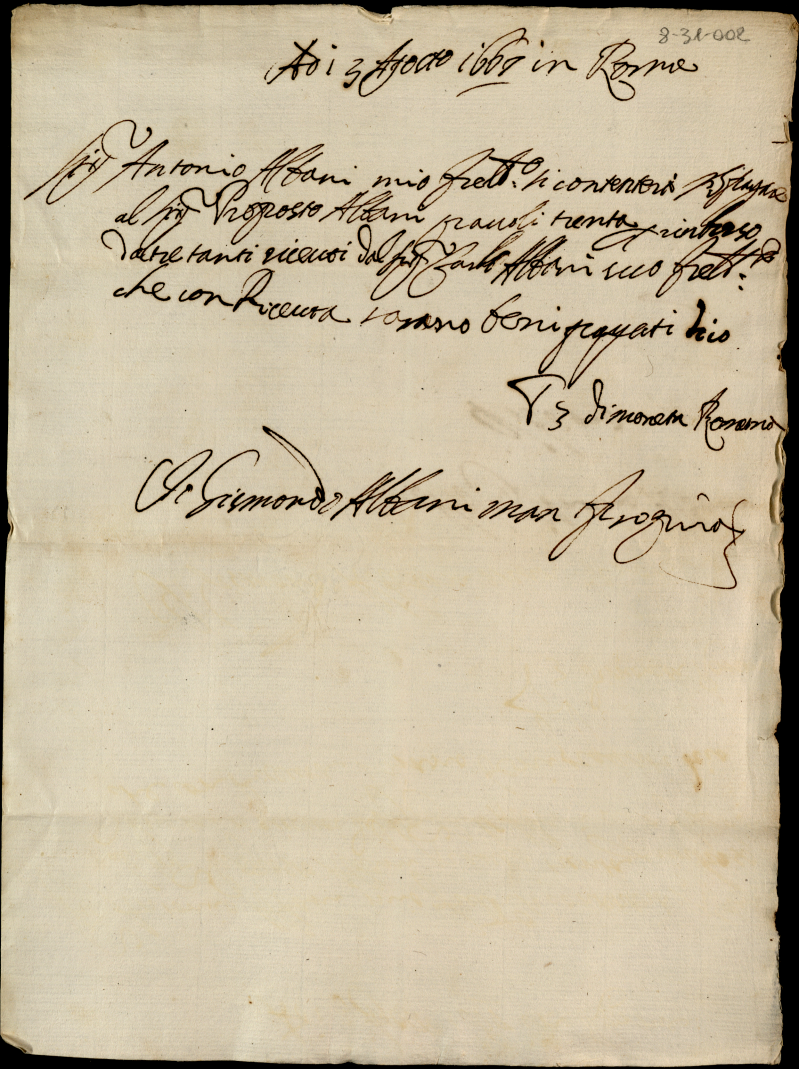 8-31-002
Adi 3 Agosto 1667 in Roma
Sig.r Antonio Albani mio frell.o si contenterà pagare
al Sig.r Proposto Albani pauoli trenta
d'altretanti riceuti dal Sig.r Carlo Albani suo frell.o
che con Riceuta sarano ben pagati dico
3 di moneta Romana
Io Gismondo Albani man propria